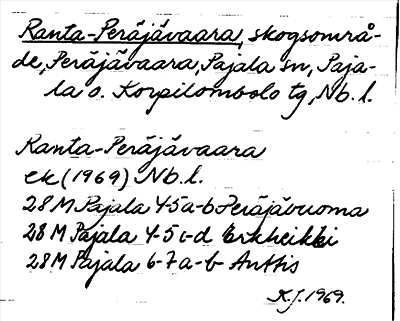 Ranta-Peräjävaara, skogsområ-
de, Peräjävaara, Pajala sn, Paja-
la o. Korpilombolo tg, Nb. l.
Ranta-Peräjävaara
ek (1969) Nb. l.
28 M Pajala 4-5 a-b Peräjävuoma
28 M Pajala 4-5 c-d Erkheikki
28 M Pajala 6-7 a-b Anttis
K.J. 1969.